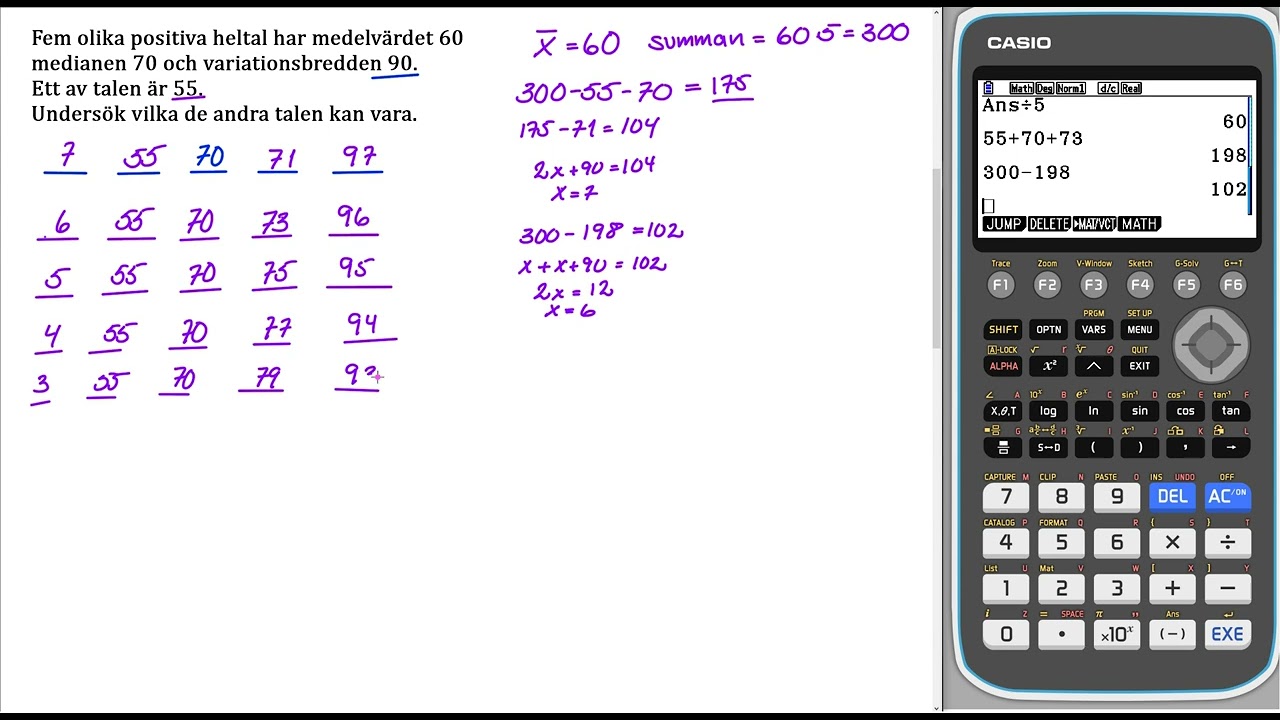 Fem olika positiva heltal har medelvärdet 60
medianen 70 och variationsbredden 90.
Ett av talen är 55.
Undersök vilka de andra talen kan vara.
7 55 70 71 97
6 55 70 73 96
5 55 70 75 95
4 55 70 77 94
3 55 70 79 93
x̄ = 60 summan = 60·5 = 300
300-55-70 = 175
175-71 = 104
2x+90 = 104
x = 7
300-198 = 102
x+x+90 = 102
2x = 12
x = 6
CASIO
Math Deg Norm1 d/c Real
Ans÷5
60
55+70+73
198
300-198
102
JUMP DELETE ▶MAT/VCT MATH
Trace Zoom V-Window Sketch G-Solv G↔T
F1 F2 F3 F4 F5 F6
PRGM SET UP
SHIFT OPTN VARS MENU
A-LOCK √ r ∛ θ QUIT
ALPHA x² ^ EXIT
∠ A 10ˣ B eˣ C sin⁻¹ D cos⁻¹ E tan⁻¹ F
X,θ,T log ln sin cos tan
G H I x⁻¹ J K L
S↔D ( ) , →
CAPTURE M CLIP N PASTE O INS UNDO OFF
7 8 9 DEL AC/ON
CATALOG P FORMAT Q R { S } T
4 5 6 × ÷
List U Mat V W [ X ] Y
1 2 3 + −
i Z = SPACE π " Ans ↵
0 • ×10ˣ (−) EXE